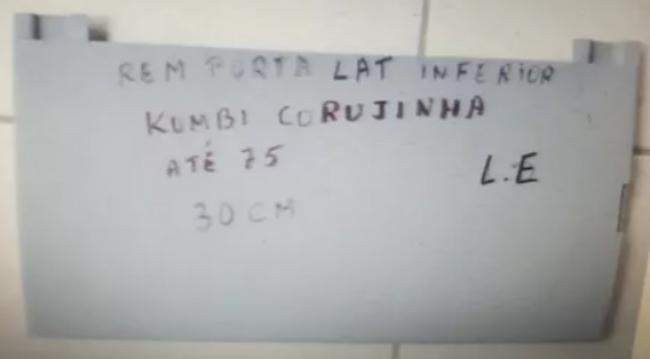 REM PORTA LAT INFERIOR
KUMBI CORUJINHA
ATÉ 75
L.E
30 CM